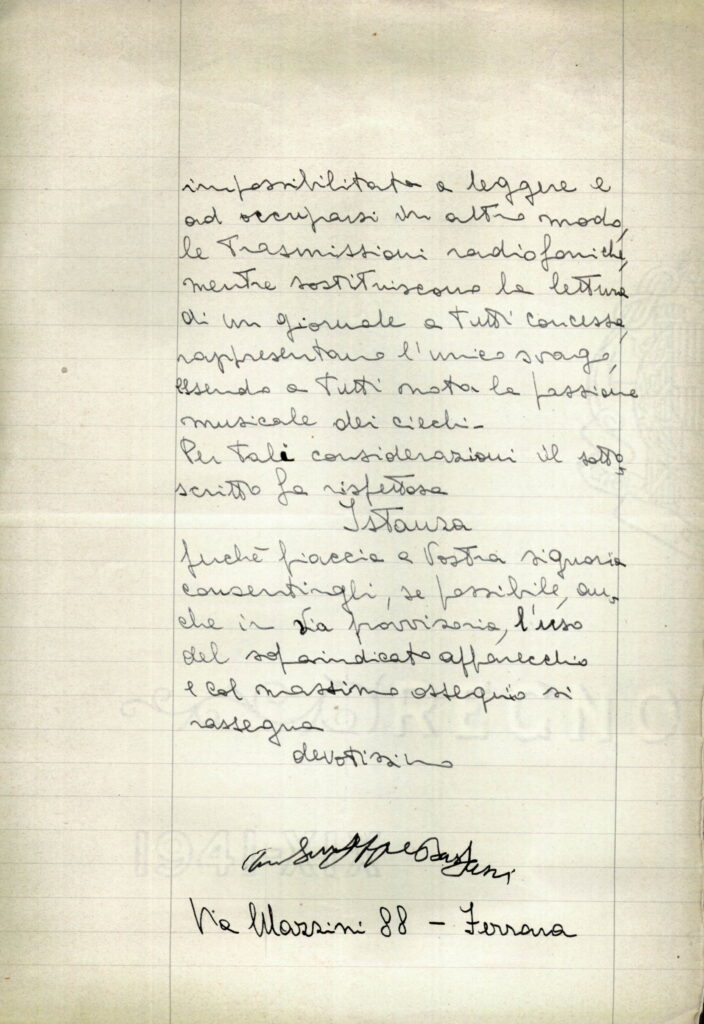 impossibilitata a leggere e
ad occuparsi in altro modo,
le trasmissioni radiofoniche,
mentre sostituiscono la lettura
di un giornale a tutti concessa,
rappresentano l'unico svago,
essendo a tutti nota la passione
musicale dei ciechi-
Per tali considerazioni il sotto-
scritto fa rispettosa
Istanza
perchè piaccia a Vostra signoria
consentirgli, se possibile, an-
che in via provvisoria, l'uso
del sopraindicato apparecchio
e col massimo ossequio si
rassegna
devotissimo
Giuseppe Bassani
Via Mazzini 88 - Ferrara